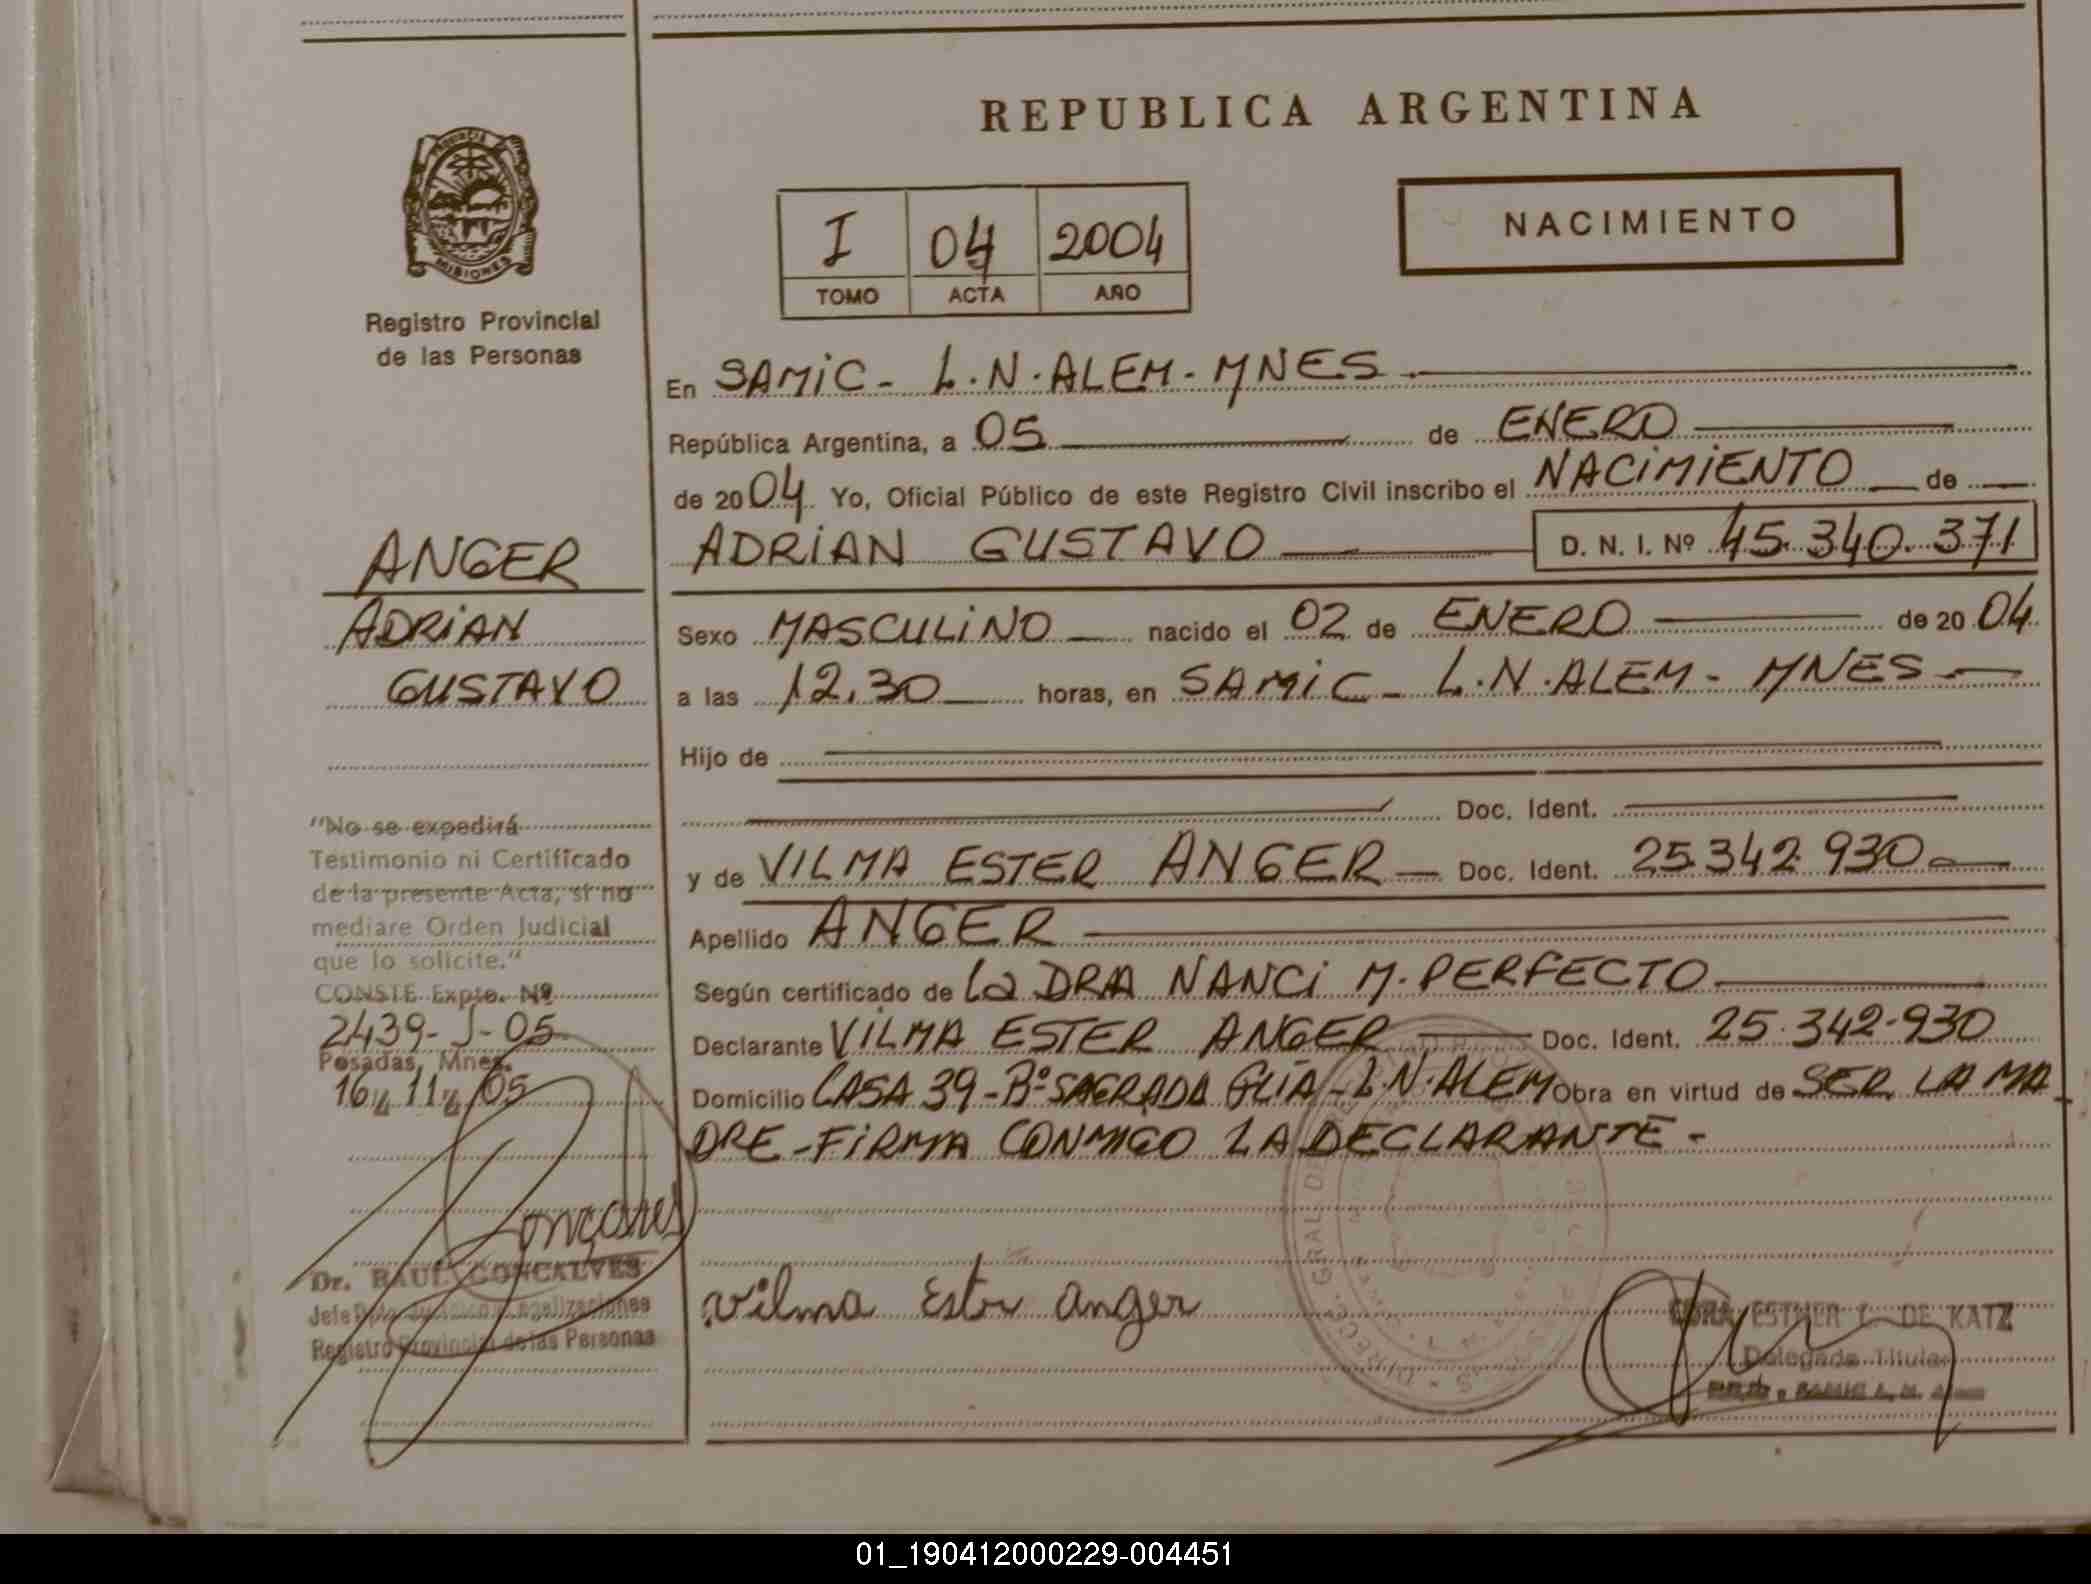 REPUBLICA ARGENTINA
PROVINCIA
MISIONES
Registro Provincial
de las Personas
I 04 2004
TOMO ACTA AÑO
NACIMIENTO
En SAMIC - L.N.ALEM - MNES
República Argentina, a 05 de ENERO
de 2004 Yo, Oficial Público de este Registro Civil inscribo el NACIMIENTO de
ADRIAN GUSTAVO D. N. I. Nº 45.340.371
Sexo MASCULINO nacido el 02 de ENERO de 2004
a las 12.30 horas, en SAMIC - L.N.ALEM - MNES
Hijo de
Doc. Ident.
y de VILMA ESTER ANGER Doc. Ident. 25.342.930
Apellido ANGER
Según certificado de La DRA NANCI M. PERFECTO
Declarante VILMA ESTER ANGER Doc. Ident. 25.342.930
Domicilio CASA 39 - Bº SAGRADA FLIA - L.N.ALEM Obra en virtud de SER LA MA
DRE - FIRMA CONMIGO LA DECLARANTE -
Vilma Ester Anger
ESTHER L. DE KATZ
Delegada Titular
ANGER
ADRIAN
GUSTAVO
"No se expedirá
Testimonio ni Certificado
de la presente Acta, si no
mediare Orden Judicial
que lo solicite."
CONSTE Expte. Nº
2439-J-05
Posadas, Mnes.
16 11 05
Gonçalves
Dr. RAUL GONCALVES
Jefe Dpto. Legalizaciones
Registro Provincial de las Personas
01_190412000229-004451